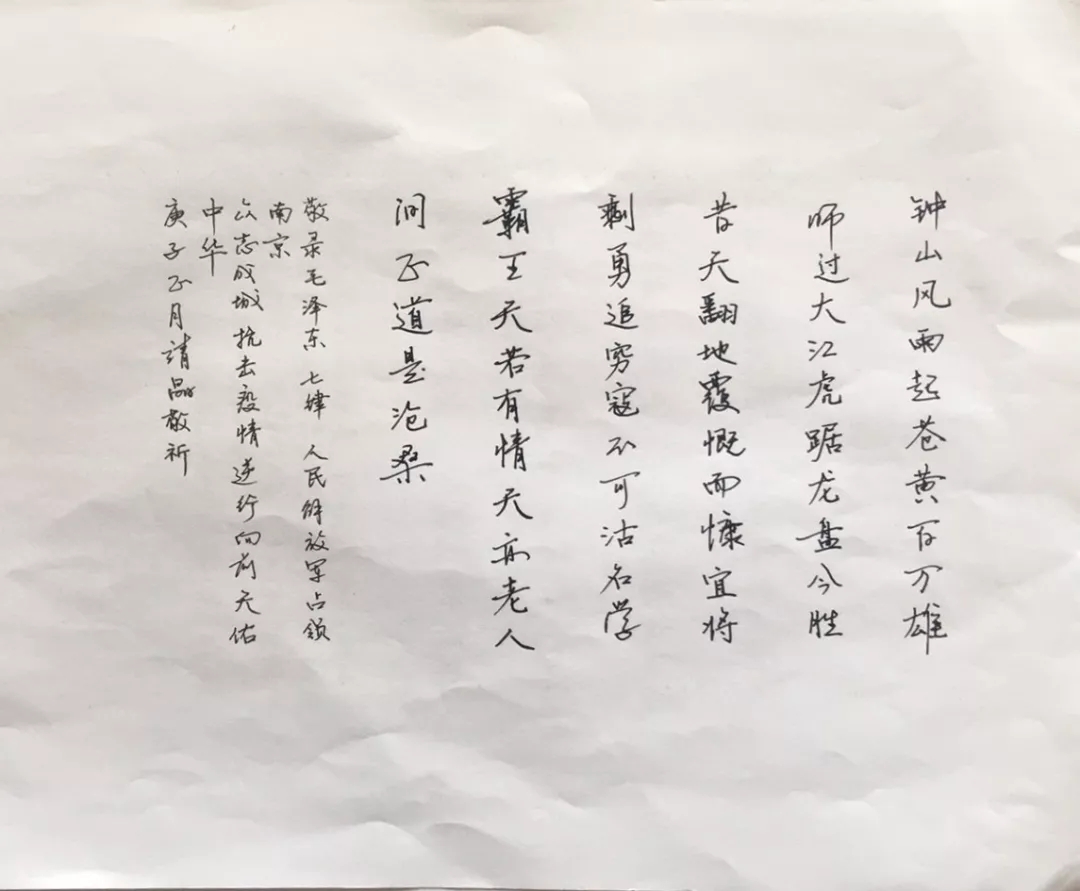 钟山风雨起苍黄百万雄
师过大江虎踞龙盘今胜
昔天翻地覆慨而慷宜将
剩勇追穷寇不可沽名学
霸王天若有情天亦老人
间正道是沧桑
敬录毛泽东七律人民解放军占领
南京
众志成城抗击疫情逆行向前天佑
中华
庚子正月靖磊敬祈